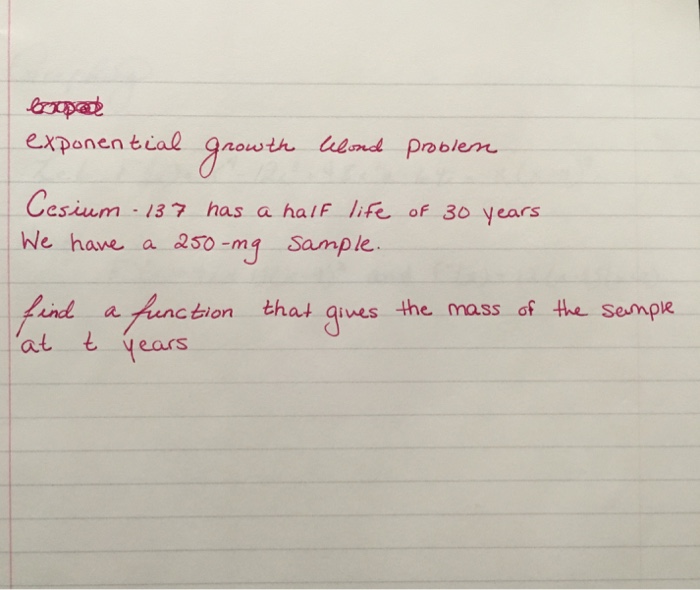 exponential growth word problem
Cesium-137 has a half life of 30 years
We have a 250-mg sample.
find a function that gives the mass of the sample
at t years